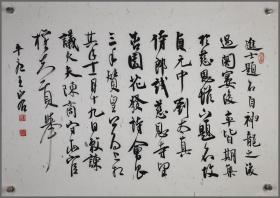 進士題名自神龍之後
過関宴後率皆期集
於慈恩塔下題名故
貞元中劉太真
侍郎試慈恩寺望
杏園花發詩會昌
三年贊皇公為上相
其年十二月十九日敕諫
議大夫陳商守本官
權知貢舉